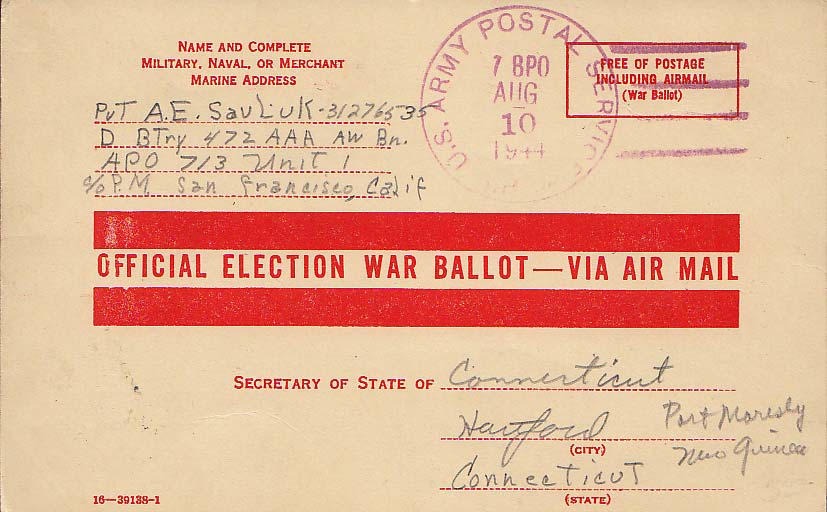 NAME AND COMPLETE
MILITARY, NAVAL, OR MERCHANT
MARINE ADDRESS
PvT A.E. SavLuK-31276535
D BTry 472 AAA AW Bn.
APO 713 Unit 1
c/o P.M. San Francisco, Calif
U.S. ARMY POSTAL SERVICE
7 BPO
AUG
10
1944
FREE OF POSTAGE
INCLUDING AIRMAIL
(War Ballot)
OFFICIAL ELECTION WAR BALLOT—VIA AIR MAIL
SECRETARY OF STATE OF Connecticut
Hartford
(CITY)
Port Moresby
New Guinea
Connecticut
(STATE)
16—39138-1